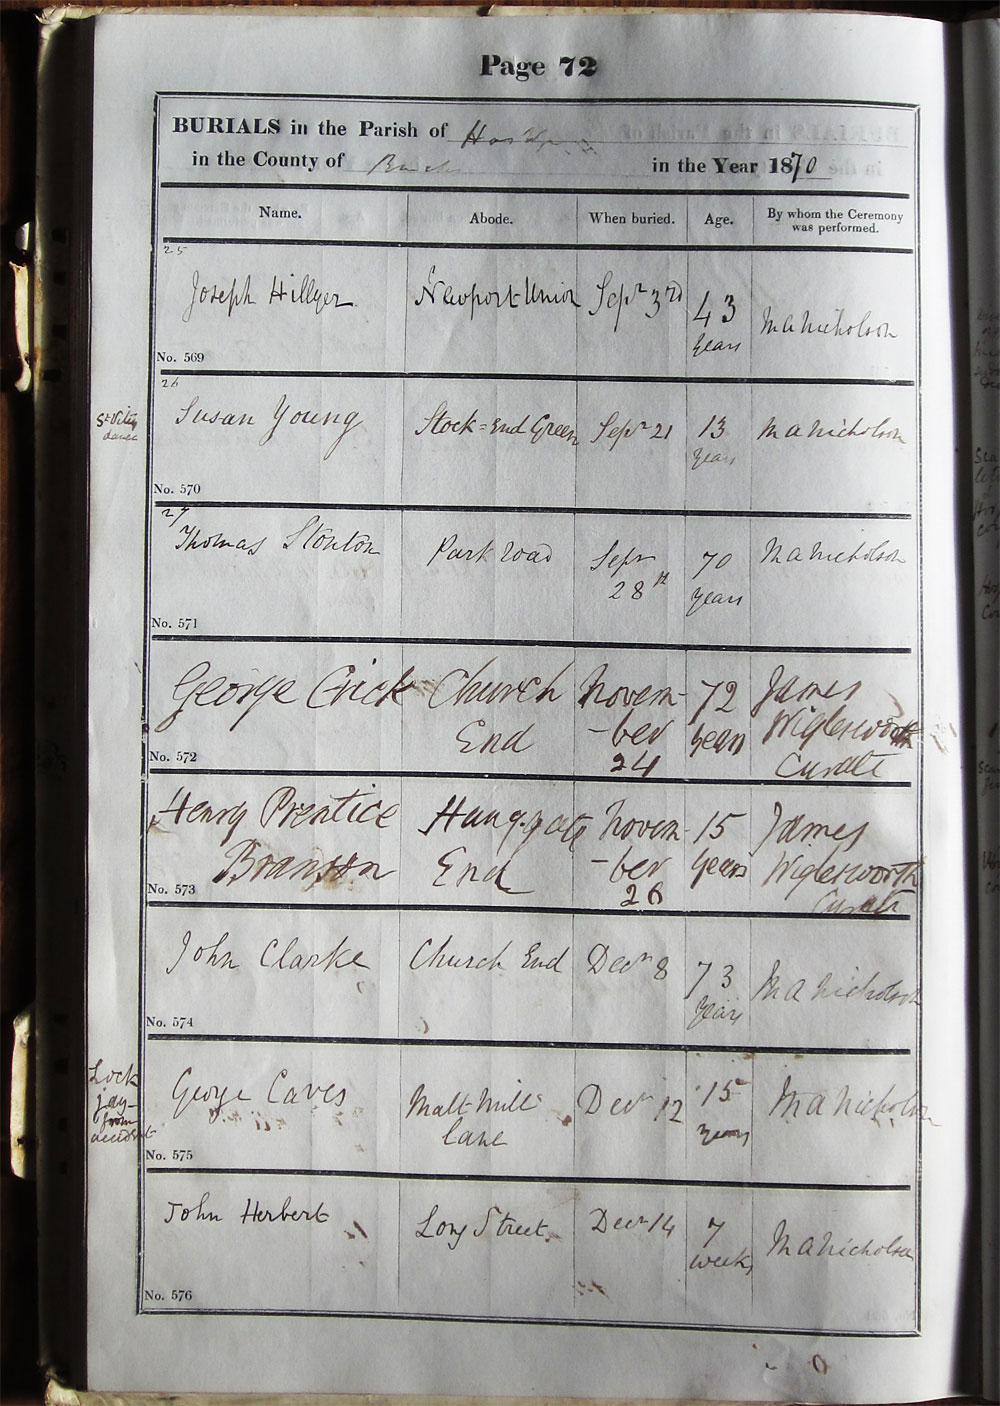 Page 72
BURIALS in the Parish of
in the County of Bucks in the Year 1870
Name. Abode. When buried. Age. By whom the Ceremony was performed.
25
Joseph Hillyer Newport Union Sepr 3rd 43 years M A Nicholson
No. 569
26
St Vitus dance
Susan Young Stock=End Green Sepr 21 13 years M A Nicholson
No. 570
27
Thomas Stonton Park road Sepr 28th 70 years M A Nicholson
No. 571
George Crick Church End Novem-ber 24 72 years James Wiglesworth Curate
No. 572
Henry Prentice Branson End Novem-ber 26 15 years James Wiglesworth Curate
No. 573
John Clarke Church End Decr 8 73 years M A Nicholson
No. 574
Lock jaw from accident
George Caves Malt Mill lane Decr 12 15 years M A Nicholson
No. 575
John Herbert Long Street Decr 14 7 weeks M A Nicholson
No. 576